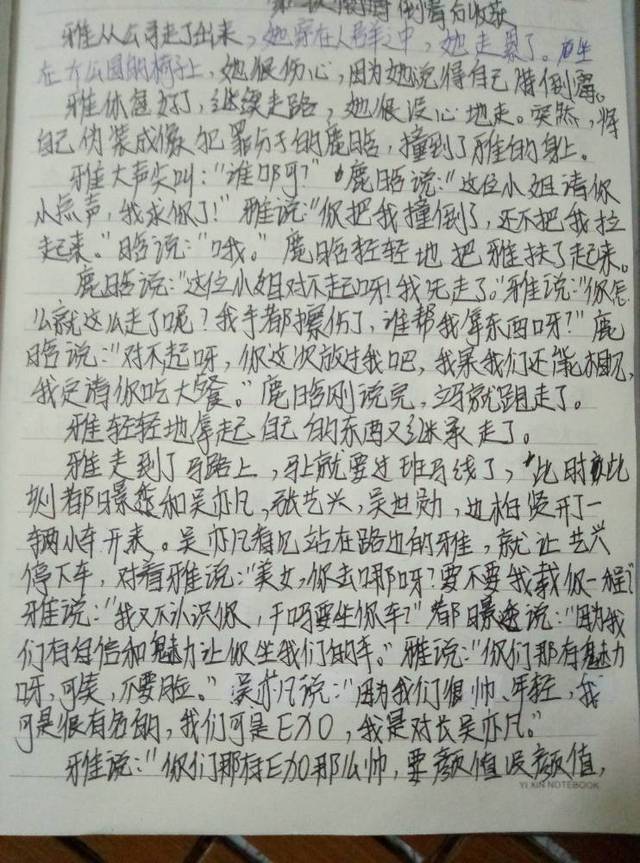 倒霉的收获
雅从公司走了出来，她穿在人群之中，她走累了。后坐
在大公园的椅子上，她很伤心，因为她觉得自己特倒霉。
雅休息好了，继续走路，她很没心地走。突然，将
自己伪装成像犯罪分子的鹿晗，撞到了雅的身上。
雅大声尖叫：“谁卬啊？”鹿晗说：“这位小姐请你
小点声，我求你了！”雅说：“你把我撞倒了，还不把我拉
起来。”晗说：“哦。”鹿晗轻轻地把雅扶了起来。
鹿晗说：“这位小姐对不起呀！我先走了。”雅说：“你怎
么就这么走了呢？我手都擦伤了，谁帮我拿东西呀？”鹿
晗说：“对不起呀，你这次放过我吧，我果我们还能相见，
我定请你吃大餐。”鹿晗刚说完，立马就跑走了。
雅轻轻地拿起自己的东西又继承走了。
雅走到了马路上，马上就要过班马线了，此时此
刻都暻秀和吴亦凡，张艺兴，吴世勋，边柏贤开了一
辆小车开来。吴亦凡看见站在路边的雅，就让艺兴
停下车，对着雅说：“美女，你去哪呀？要不要我载你一程？”
雅说：“我又不认识你，干吗要坐你车？”都暻秀说：“因为我
们有自信和魅力让你坐我们的车。”雅说：“你们那有魅力
呀，可笑，不要脸。”吴亦凡说：“因为我们很帅、年轻，我
可是很有名的，我们可是EXO，我是对长吴亦凡。”
雅说：“你们那有EXO那么帅，要颜值没颜值，
YI XIN NOTEBOOK